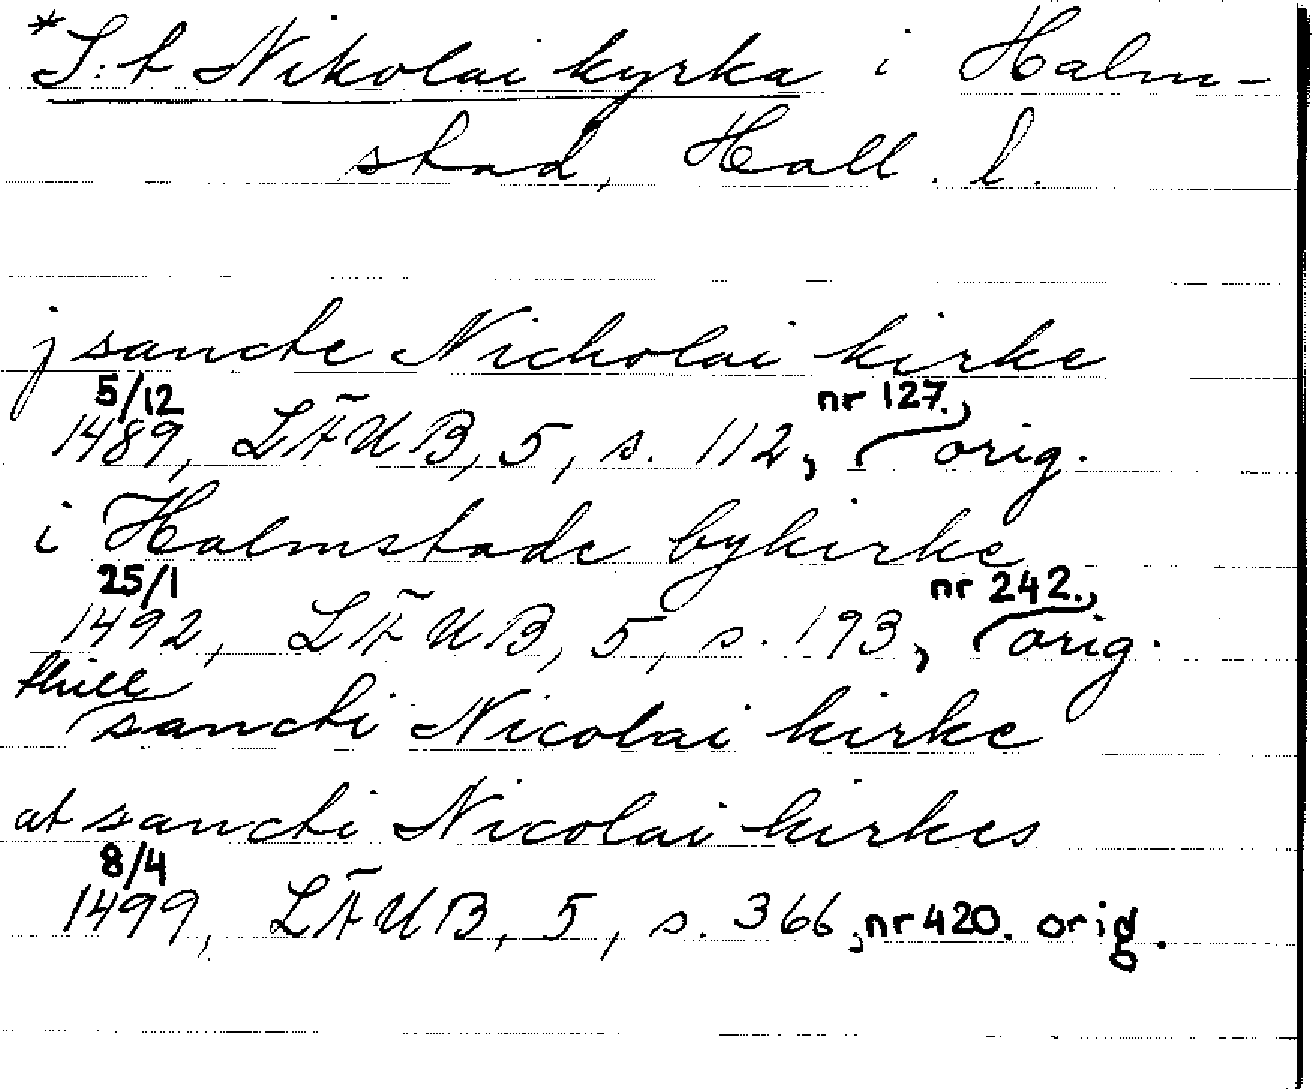 *S:t Nikolai kyrka i Halm-
stad, Hall. l.
j sancte Nicholai kirke
5/12 nr 127.,
1489, LÄUB, 5, s. 112, orig.
i Halmstade bykirke
25/1 nr 242.,
1492, LÄUB, 5, s. 193, orig.
thill
sancti Nicolai kirke
at sancti Nicolai kirkes
8/4
1499, LÄUB, 5, s. 366, nr 420. orig.